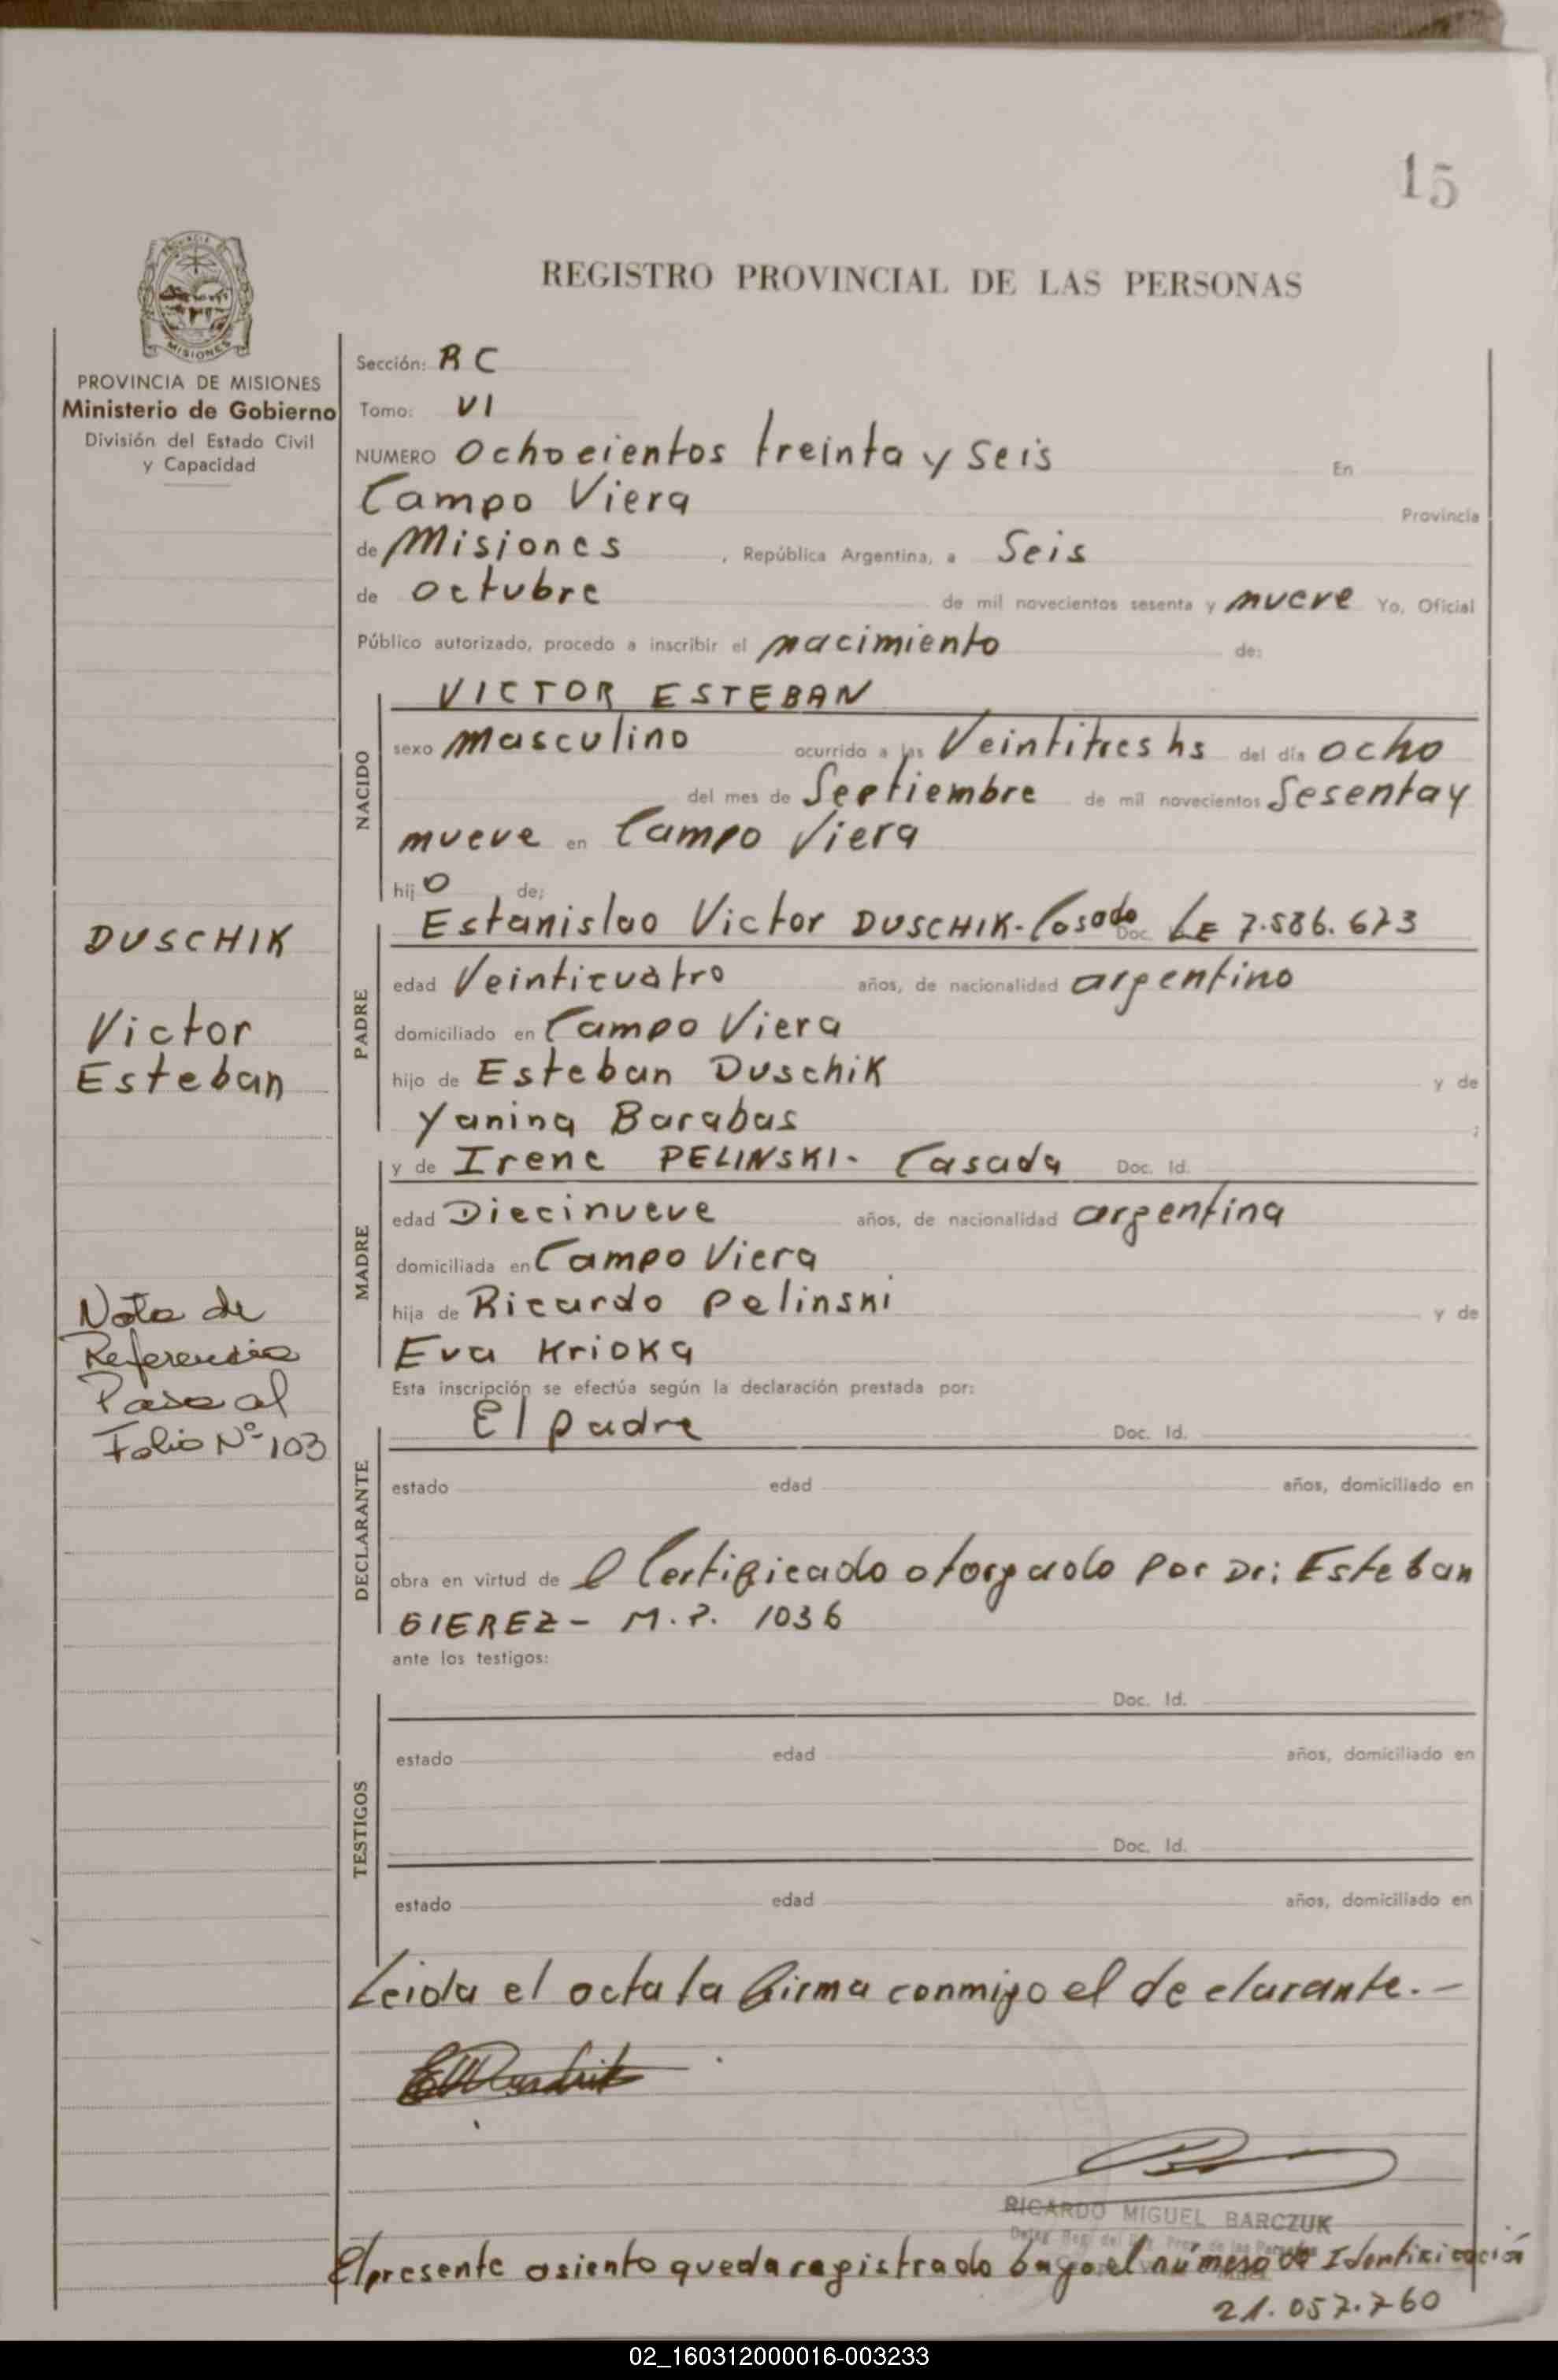 15
REGISTRO PROVINCIAL DE LAS PERSONAS
MISIONES
PROVINCIA DE MISIONES
Ministerio de Gobierno
División del Estado Civil
y Capacidad
Sección: RC
Tomo: VI
NUMERO Ochocientos treinta y seis En
Campo Viera Provincia
de Misiones, República Argentina, a Seis
de octubre de mil novecientos sesenta y nueve Yo, Oficial
Público autorizado, procedo a inscribir el nacimiento de:
NACIDO
VICTOR ESTEBAN
sexo masculino ocurrido a las Veintitres hs del día ocho
del mes de Septiembre de mil novecientos Sesenta y
nueve en Campo Viera
hijo de:
DUSCHIK
Victor
Esteban
PADRE
Estanislao Victor DUSCHIK-Casado Doc. LE 7.586.673
edad Veinticuatro años, de nacionalidad argentino
domiciliado en Campo Viera
hijo de Esteban Duschik y de
Yanina Barabas ;
MADRE
y de Irene PELINSKI- Casada Doc. Id.
edad Diecinueve años, de nacionalidad argentina
domiciliada en Campo Viera
hija de Ricardo Pelinski y de
Eva Krioka
Nota de
Referencia
Pase al
Folio Nº 103
Esta inscripción se efectúa según la declaración prestada por:
DECLARANTE
El padre Doc. Id.
estado edad años, domiciliado en
obra en virtud de l Certificado otorgado por Dr: Esteban
GIEREZ- M.P. 1036
ante los testigos:
TESTIGOS
Doc. Id.
estado edad años, domiciliado en
Doc. Id.
estado edad años, domiciliado en
Leida el acta la firma conmigo el declarante.-
RICARDO MIGUEL BARCZUK
El presente asiento queda registrado bajo el número de Identificación
21.057.760
02_160312000016-003233